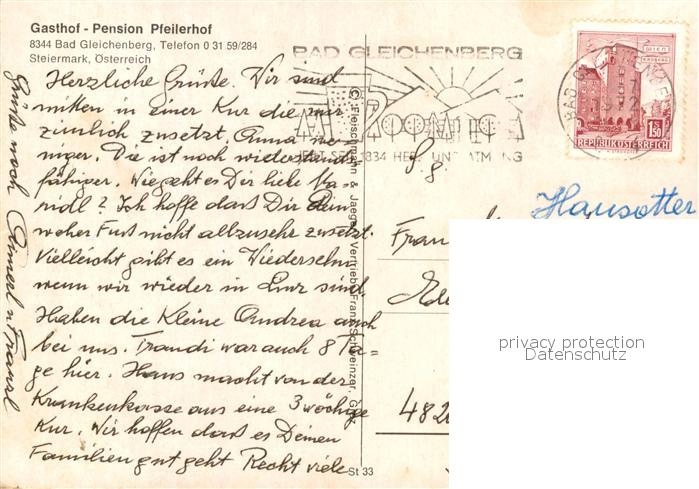 Gasthof - Pension Pfeilerhof
8344 Bad Gleichenberg, Telefon 0 31 59/284
Steiermark, Österreich
BAD GLEICHENBERG
WIEN
1.50
REPUBLIK ÖSTERREICH
Herzliche Grüße. Wir sind
mitten in einer Kur die mir
zimlich zusetzt, Anna we-
niger. Die ist noch wiederstands
fähiger. Wie geht es Dir liebe Ma-
ridl? Ich hoffe dass Dir Dein
weher Fuß nicht allzusehr zusetzt.
Vielleicht gibt es ein Wiedersehn
wenn wir wieder in Linz sind.
Haben die Kleine Andrea auch
bei uns. Traudi war auch 8 Ta-
ge hier. Hans macht von der
Krankenkasse aus eine 3 wöchige
Kur. Wir hoffen dass es Deinen
Familien gut geht Recht viele
Grüße noch
© Fleischmann & Jaeger, Vertrieb: Franz Schweinzer, Graz
St 33
S. g.
Hausotter
Frau
482
privacy protection
Datenschutz